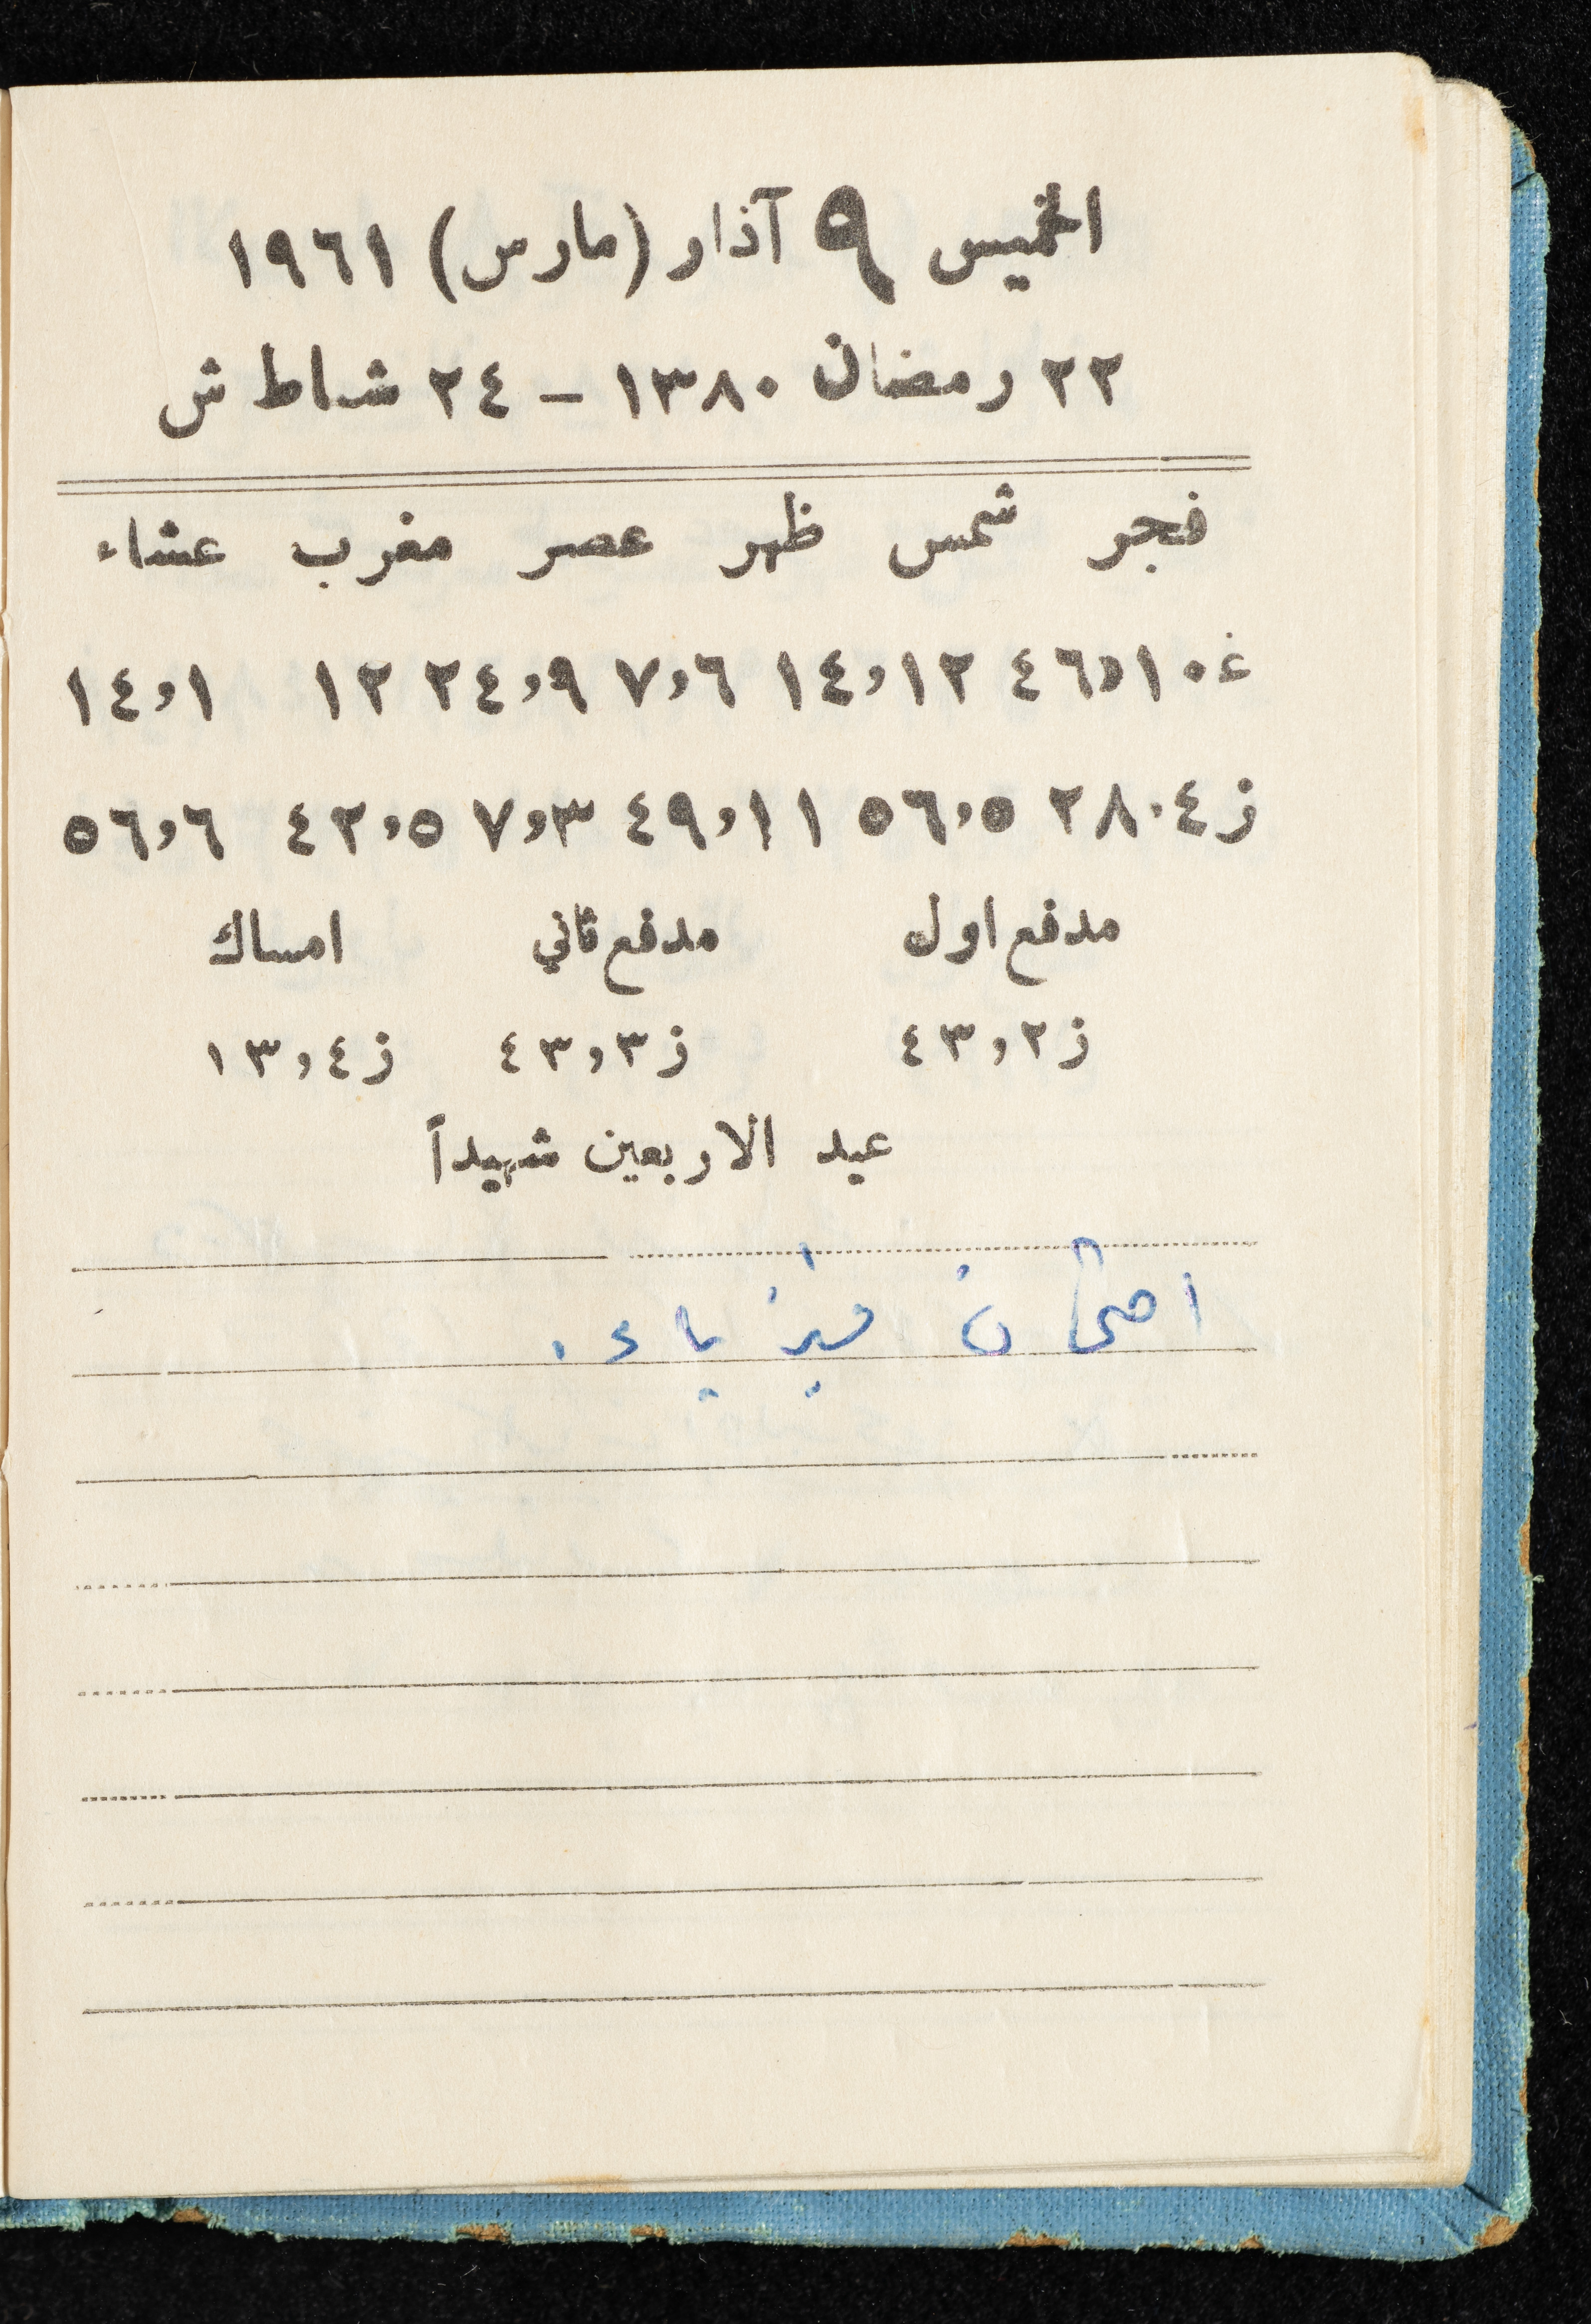 الخميس ٩ آذار (مارس) ١٩٦١
٢٢ رمضان ١٣٨٠ – ٢٤ شباط ش
فجر شمس ظهر عصر مغرب عشاء
غ ١٠,٤٦ ١٢,١٤ ٦,٧ ٩,٢٤ ١٢ ١,١٤
ز ٤,٢٨ ٥,٥٦ ١١,٤٩ ٣,٧ ٥,٤٢ ٦,٥٦
مدفع اول مدفع ثاني امساك
ز ٢,٤٣ ز ٣,٤٣ ز ٤,١٣
عيد الاربعين شهيداً
امتحان فيزياء.